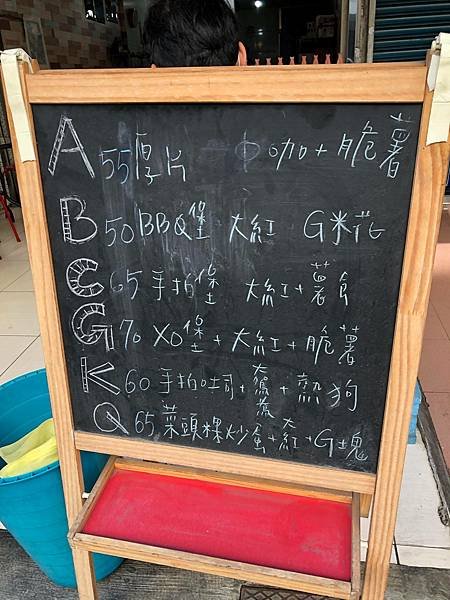 A 55厚片 中咖+脆薯
B 50BBQ堡 大紅 G米花
C 65手拍堡 大紅+薯餅
G 70 XO堡+大紅+脆薯
K 60手拍吐司+大鴛鴦+熱狗
Q 65菜頭粿炒蛋+大紅+G塊